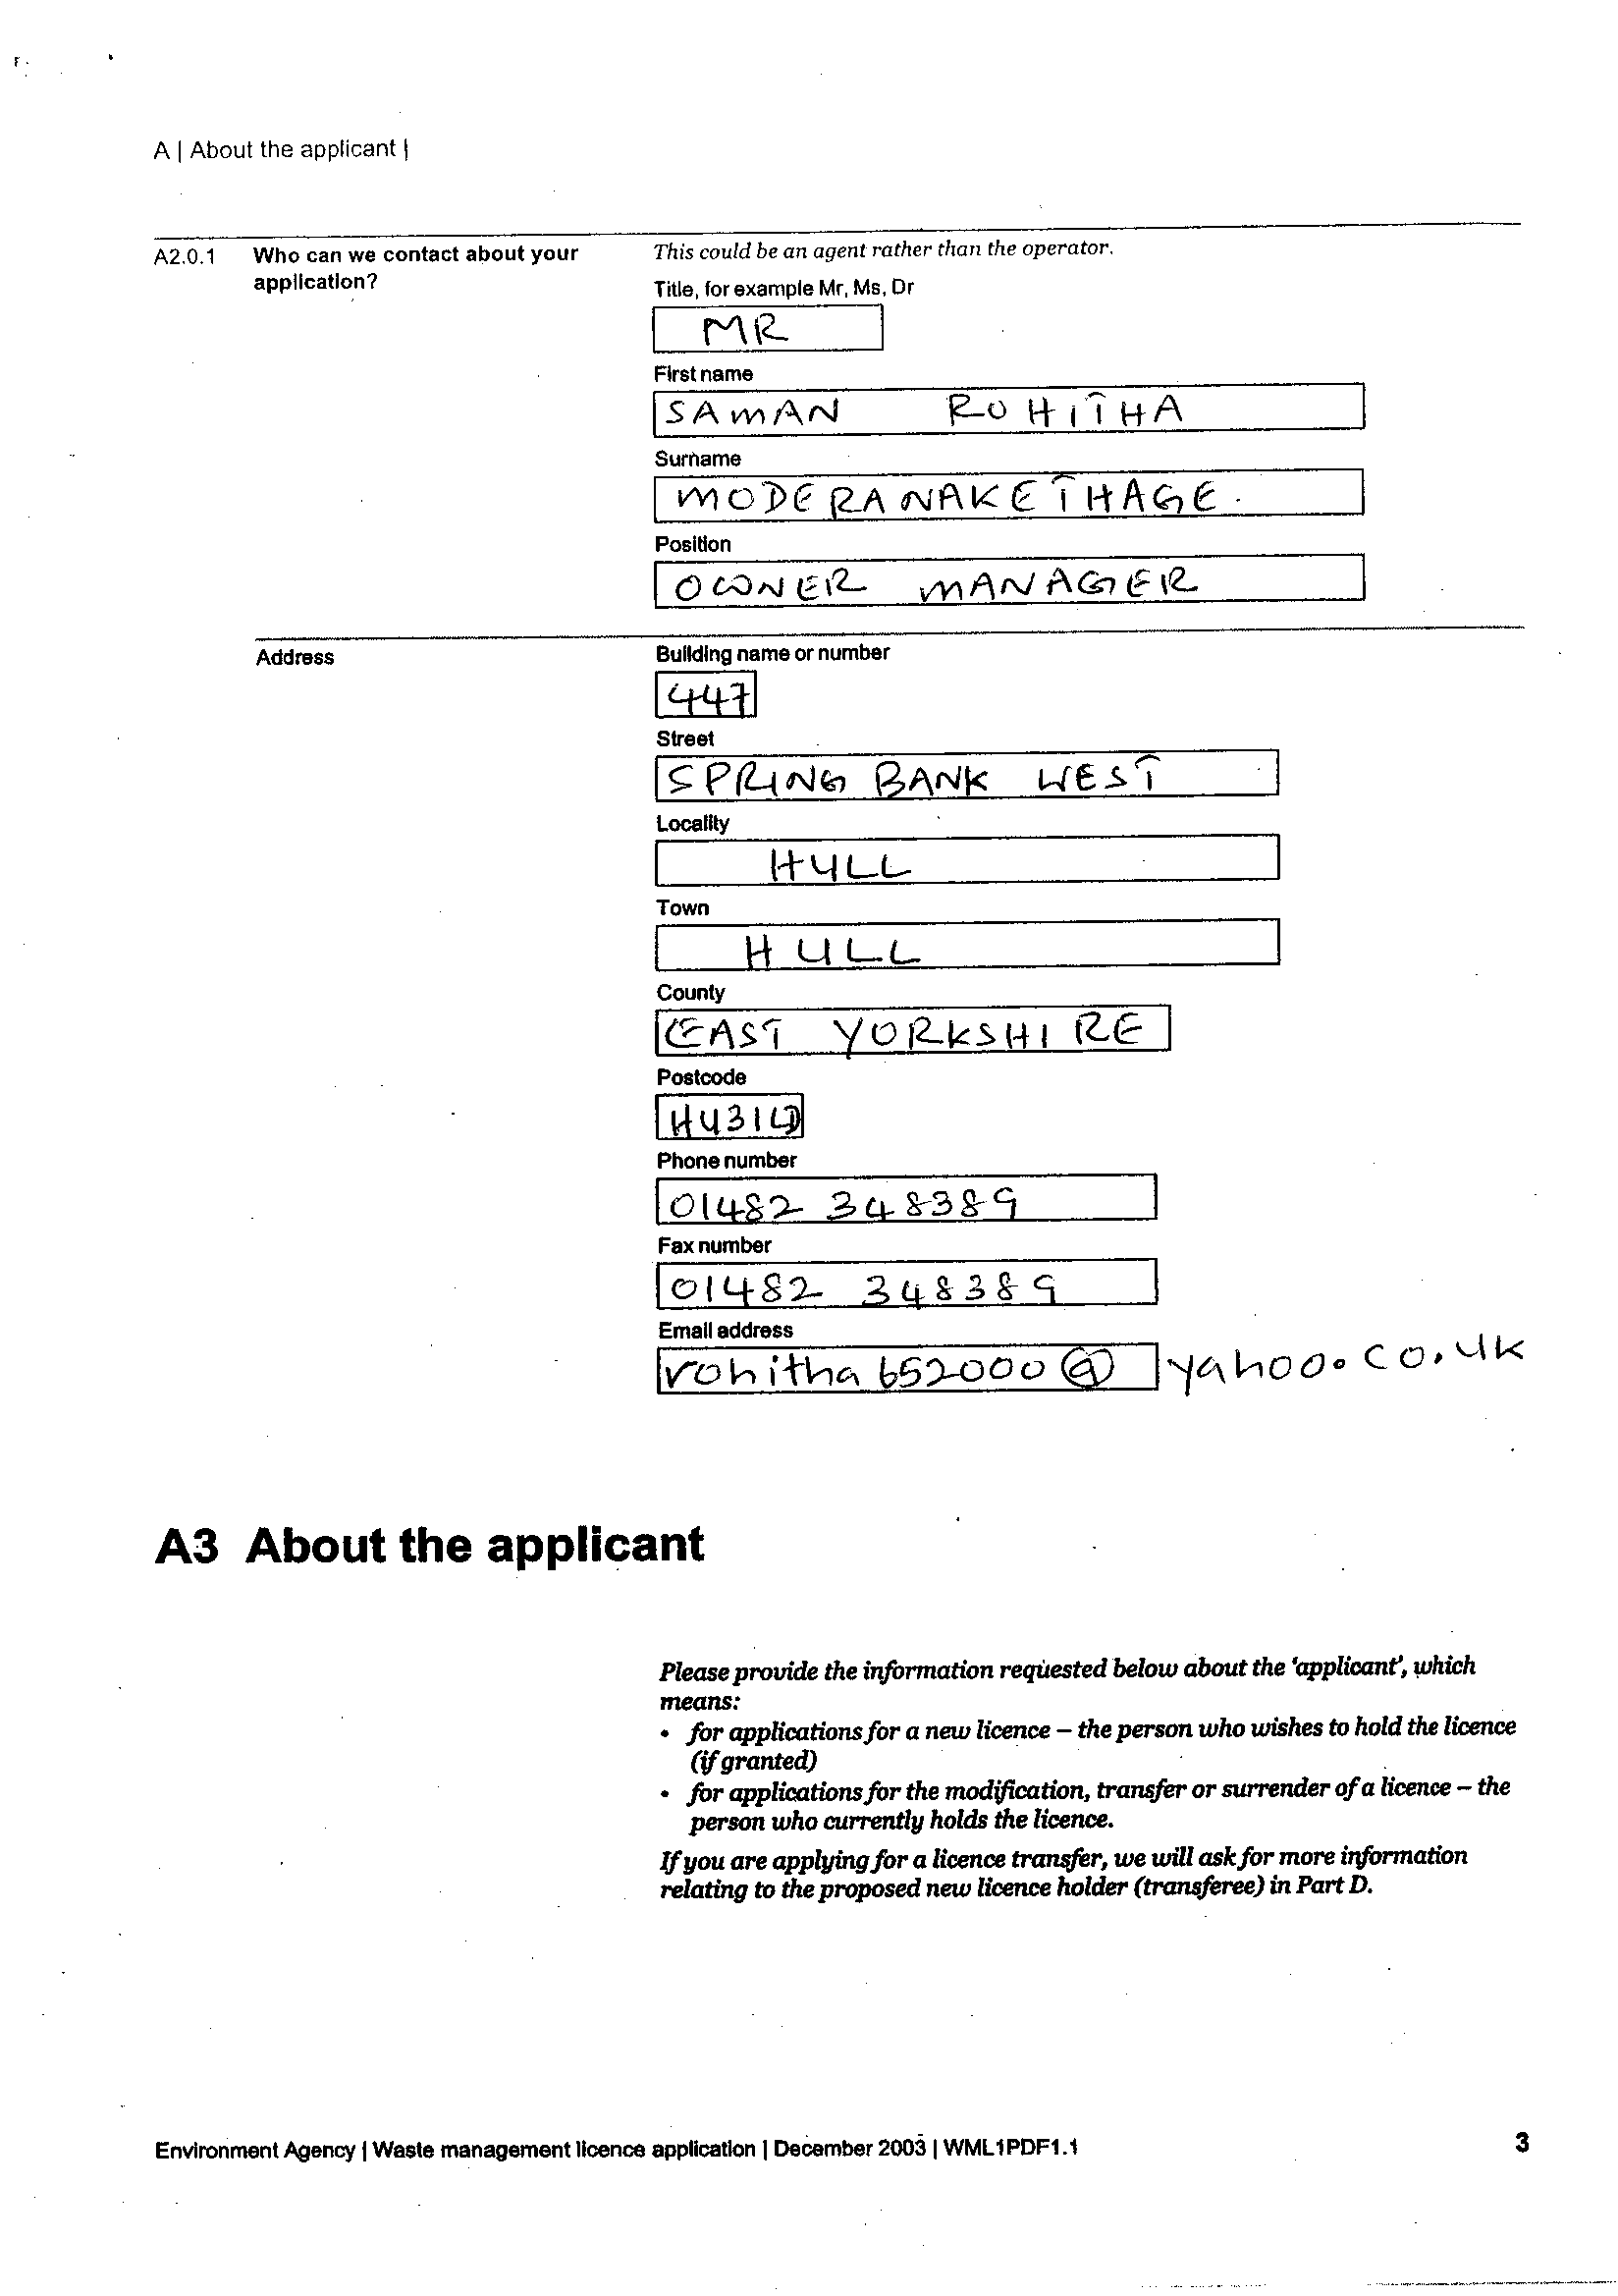 A | About the applicant |
A2.0.1 Who can we contact about your application?
This could be an agent rather than the operator.
Title, for example Mr, Ms, Dr
MR
First name
SAMAN ROHITHA
Surname
MODERANAKETHAGE.
Position
OWNER MANAGER
Address
Building name or number
447
Street
SPRING BANK WEST
Locality
HULL
Town
HULL
County
EAST YORKSHIRE
Postcode
Phone number
01482 348389
Fax number
01482 348389
Email address
rohitha652000@yahoo.co.uk
A3 About the applicant
Please provide the information requested below about the 'applicant', which
means:
• for applications for a new licence – the person who wishes to hold the licence
(if granted)
• for applications for the modification, transfer or surrender of a licence – the
person who currently holds the licence.
If you are applying for a licence transfer, we will ask for more information
relating to the proposed new licence holder (transferee) in Part D.
Environment Agency | Waste management licence application | December 2003 | WML1PDF1.1
3